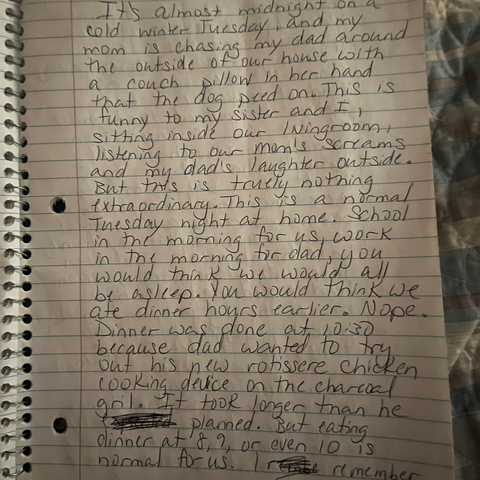 It's almost midnight on a
cold winter Tuesday, and my
mom is chasing my dad around
the outside of our house with
a couch pillow in her hand
that the dog peed on. This is
funny to my sister and I,
sitting inside our livingroom,
listening to our mom's screams
and my dad's laughter outside.
But this is truely nothing
extraordinary. This is a normal
Tuesday night at home. School
in the morning for us, work
in the morning for dad, you
would think we would all
be asleep. You would think we
ate dinner hours earlier. Nope.
Dinner was done at 10:30
because dad wanted to try
out his new rotissere chicken
cooking device on the charcoal
gril. It took longer than he
planned. But eating
dinner at 8, 9, or even 10 is
normal for us. I remember